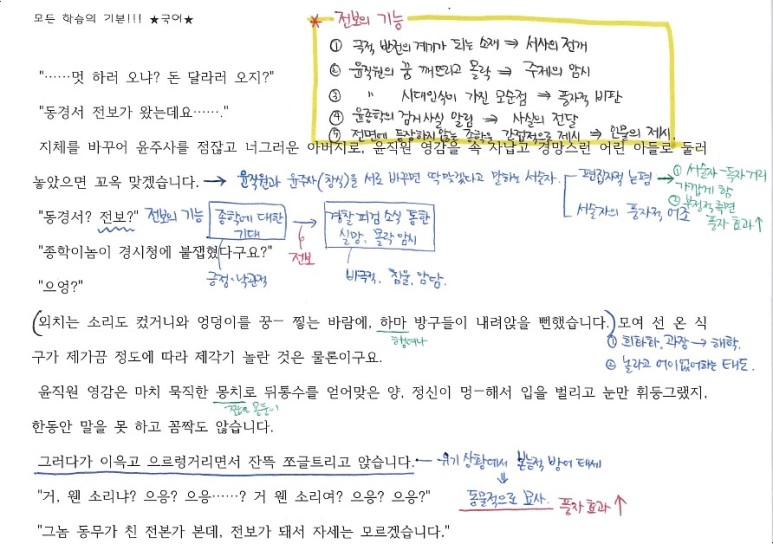 모든 학습의 기본!!! ★국어★
* 전보의 기능
① 극적 반전의 계기가 되는 소재 ⇒ 서사의 전개
② 윤직원의 꿈 깨뜨리고 몰락 ⇒ 주제의 암시
③ 〃 시대인식이 가진 모순점 ⇒ 풍자적 비판
④ 윤종학의 검거사실 알림 ⇒ 사실의 전달
⑤ 전면에 등장하지 않는 종학을 간접적으로 제시 ⇒ 인물의 제시.
"……멋 하러 오냐? 돈 달라러 오지?"
"동경서 전보가 왔는데요……."
지체를 바꾸어 윤주사를 점잖고 너그러운 아버지로, 윤직원 영감을 속 사납고 경망스런 어린 아들로 둘러
놓았으면 꼬옥 맞겠습니다. → 윤직원과 윤주사(창식)를 서로 바꾸면 딱 맞겠다고 말하는 서술자.
편집자적 논평 → ① 서술자-풍자 거리 가깝게 함
② 부정적 측면 풍자 효과↑
서술자의 풍자적 어조
"동경서? 전보?" 전보의 기능
종학에 대한 기대 → 경찰 피검 소식 통한 실망, 몰락 암시
전보
"종학이놈이 경시청에 붙잽혔다구요?"
긍정·낙관적
비극적, 침울, 암담.
"으엉?"
(외치는 소리도 컸거니와 엉덩이를 꿍― 찧는 바람에, 하마 방구들이 내려앉을 뻔했습니다.) 모여 선 온 식
행여나
① 희화화, 과장 → 해학,
구가 제가끔 정도에 따라 제각기 놀란 것은 물론이구요.
② 놀라고 어이없어하는 태도.
윤직원 영감은 마치 묵직한 몽치로 뒤통수를 얻어맞은 양, 정신이 멍―해서 입을 벌리고 눈만 휘둥그랬지,
짧은 몽둥이
한동안 말을 못 하고 꼼짝도 않습니다.
그러다가 이윽고 으르렁거리면서 잔뜩 쪼글트리고 앉습니다. ← 위기 상황에서 본능적 방어 태세
"거, 웬 소리냐? 으응? 으응……? 거 웬 소리여? 으응? 으응?"
동물적으로 묘사. 풍자 효과↑
"그놈 동무가 친 전본가 본데, 전보가 돼서 자세는 모르겠습니다."